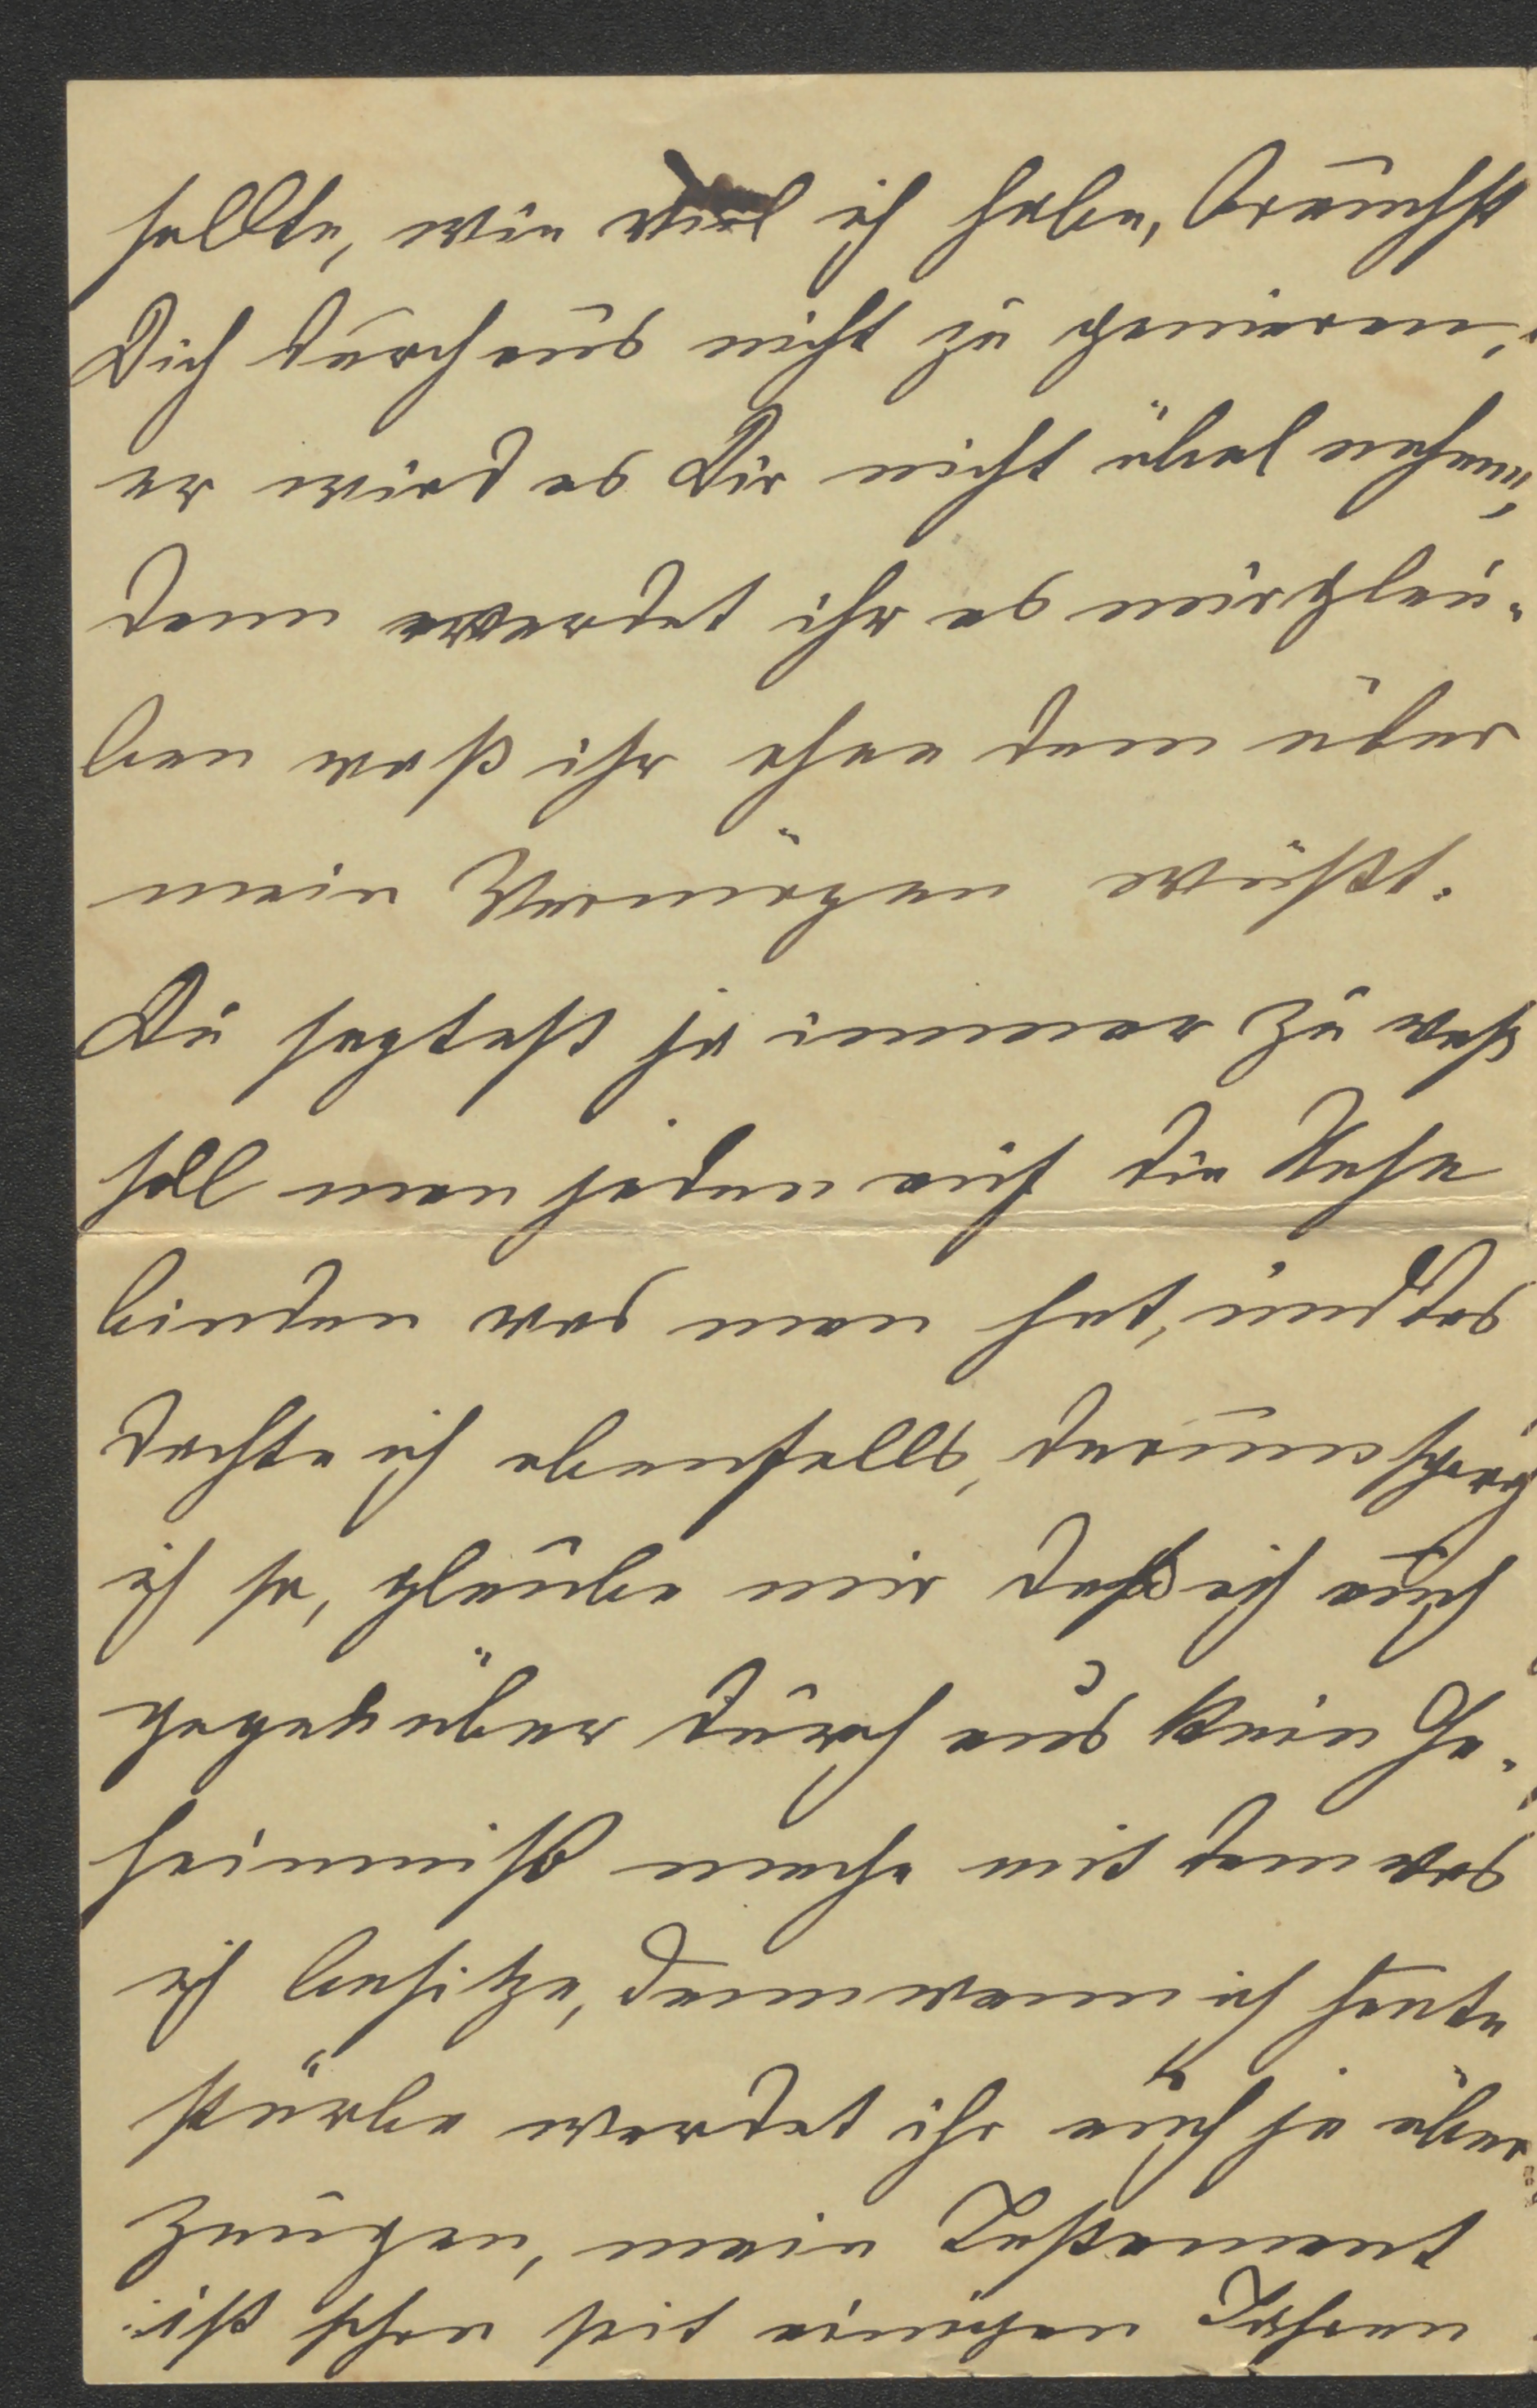 sollte, wie viel ich habe, brauchst
Dich durchaus nicht zu genieren,
er wird es Dir nicht übel nehmen,
denn werdet ihr es mir glau-
ben waß ihr ohne dem über
mein Vermögen wüßt.
Du sagtest ja immer zu waß
soll man jeden auf die Nase
binden was man hat, und das
dachte ich ebenfalls, darum
ich so, glaube mir daß ich euch
gegenüber durch aus kein Ge-
heimniß mache mit dem was
ich besitze, denn wenn ich heute
stürbe werdet ihr euch ja über
zeugen, mein Testament
ist schon seit einigen Jahren